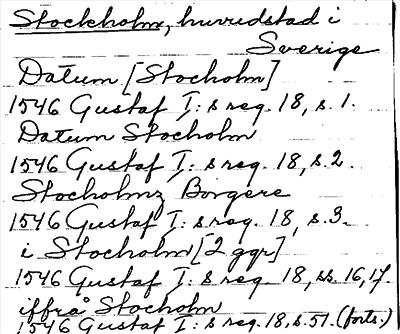 Stockholm, huvudstad i
Sverige
Datum [Stocholm]
1546 Gustaf I: s reg. 18, s. 1.
Datum Stocholm
1546 Gustaf I: s reg. 18, s. 2.
Stocholmz Borgere
1546 Gustaf I: s reg. 18, s. 3.
i Stocholm [2 ggr]
1546 Gustaf I: s reg. 18, ss. 16, 17.
iffrå Stocholm
1546 Gustaf I: s reg. 18, s. 51. (forts.)